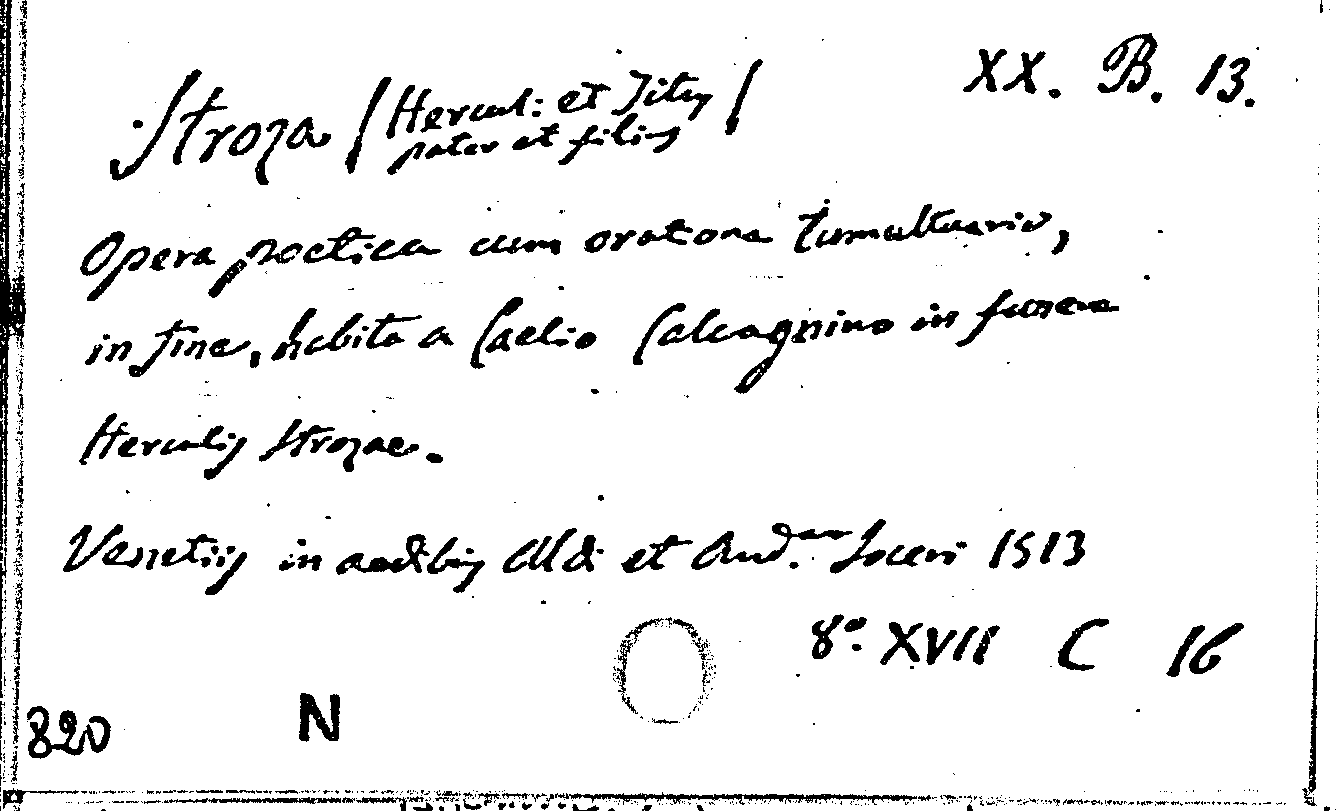 XX. B. 13.
Stroza / Hercul: et Titus /
pater et filius
Opera poetica cum oratone tumultuario,
in fine, habita a Caelio Calcagnino in funere
Herculis Strozae.
Venetiis in aedibus Aldi et And. Soceri 1513
8º XVII C 16
820 N